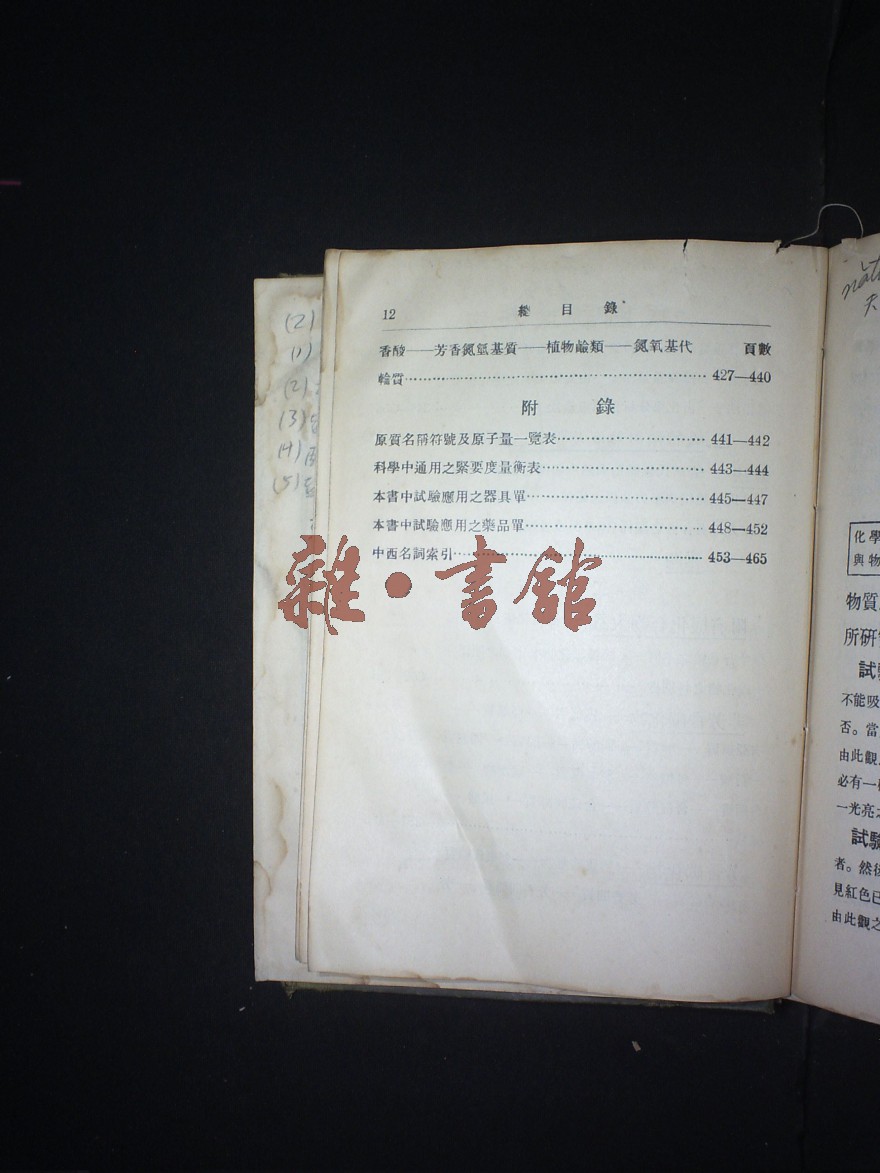 12 總目錄
香酸——芳香氮氫基質——植物鹼類——氮氧基代 頁數
輪質……427—440
附錄
原質名稱符號及原子量一覽表……441—442
科學中通用之緊要度量衡表……443—444
本書中試驗應用之器具單……445—447
本書中試驗應用之藥品單……448—452
中西名詞索引……453—465
雜·書館
(2)
(1)
(2)
(3)
(4)
(5)
化學
與物
物質
所研
試驗
不能吸
否。當
由此觀
必有一
一光亮
試驗
者。然後
見紅色已
由此觀之